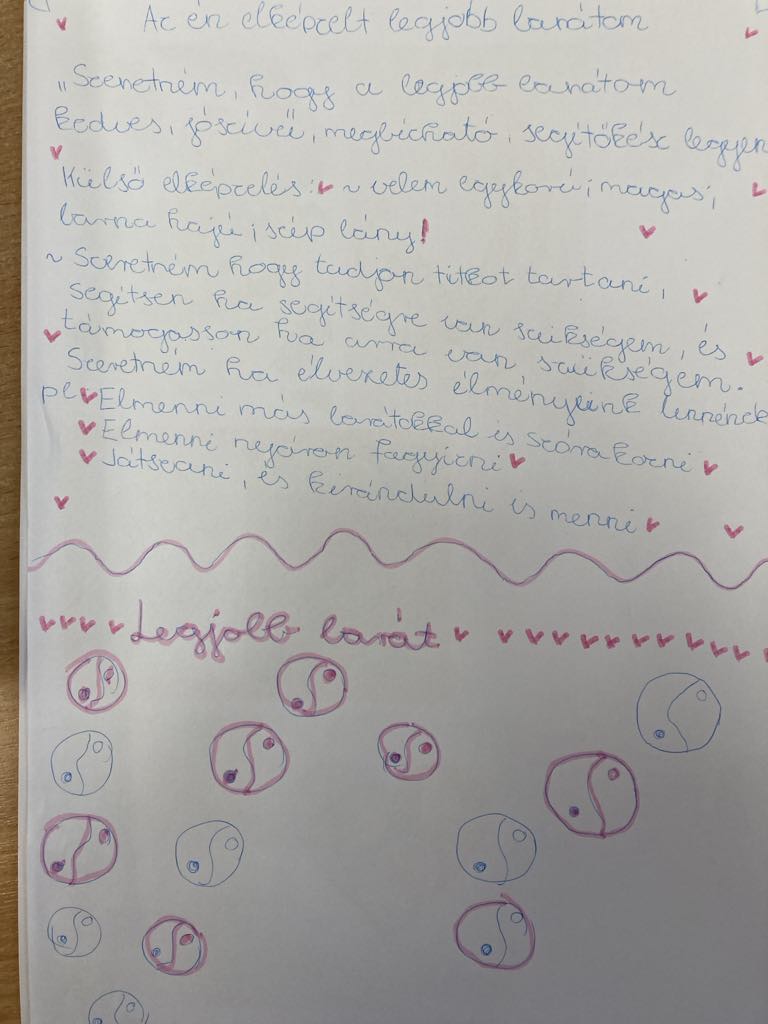 Az én elképzelt legjobb barátom
„Szeretném, hogy a legjobb barátom
kedves, jószívű, megbízható, segítőkész legyen
Külső elképzelés: ~ velem egykorú; magas;
barna hajú; szép lány!
~ Szeretném hogy tudjon titkot tartani,
segítsen ha segítségre van szükségem, és
támogasson ha arra van szükségem.
Szeretném ha élvezetes élményeink lennének
pl: Elmenni más barátokkal is szórakozni
Elmenni nyáron fagyizni
Játszani, és kirándulni is menni
Legjobb barát